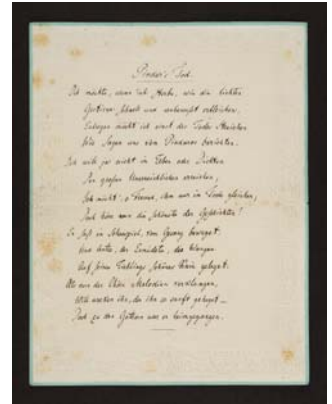 Pindar's Tod.
Ich möchte, wenn ich sterbe, wie die lichten
Gestirne, schnell und unbewußt erbleichen,
Erliegen möcht' ich einst des Todes Streichen
Wie Sagen uns vom Pindaros berichten.
Ich will ja nicht im Leben oder Dichten
Den großen Unerreichlichen erreichen,
Ich möcht', o Freund, ihm nur im Tode gleichen,
Doch höre nun die schönste der Geschichten!
Er saß im Schauspiel, vom Gesang beweget
Und hatte, der Ermüdete, die Wangen
Auf seines Lieblings schönes Knie geleget.
Als nun der Chöre Melodien verklangen,
Will wecken ihn, der ihn so sanft geheget –
Doch zu den Göttern war er heimgegangen.